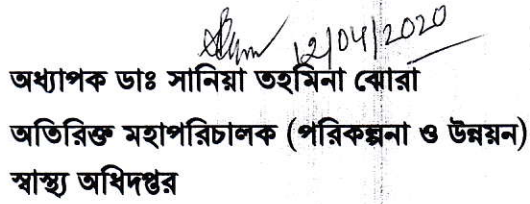 12/04/2020
অধ্যাপক ডাঃ সানিয়া তহমিনা ঝোরা
অতিরিক্ত মহাপরিচালক (পরিকল্পনা ও উন্নয়ন)
স্বাস্থ্য অধিদপ্তর